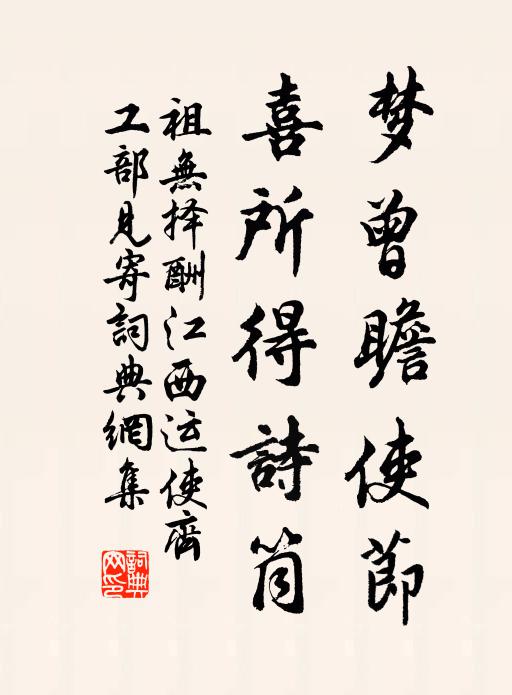 梦曾瞻使節
喜所得詩筒
祖無择酬江西运使齊
工部見寄詞典網集
詞典網印